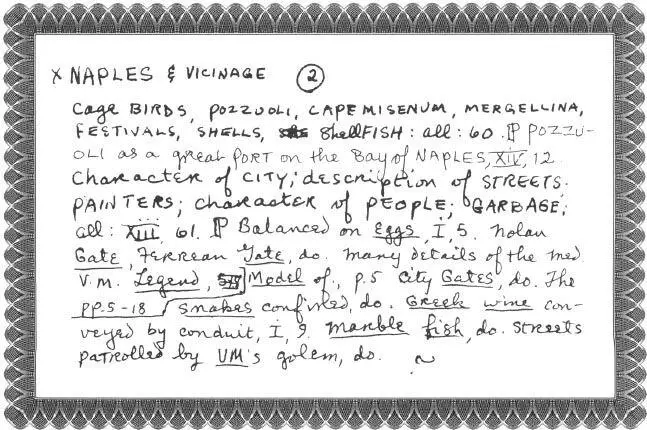 x NAPLES & VICINAGE (2)
Cage BIRDS, POZZUOLI, CAPE MISENUM, MERGELLINA,
FESTIVALS, SHELLS, ShellFISH: all: 60. ¶ POZZU-
OLI as a great PORT on the Bay of NAPLES, XIV, 12.
Character of CITY; description of STREETS.
PAINTERS; character of PEOPLE; GARBAGE;
all: XIII, 61. ¶ Balanced on Eggs, I, 5. Nolan
Gate, Ferrean Gate, do. Many details of the med
V.M. Legend, Model of, p.5 City Gates, do. The
pp.5-18 / Snakes confined, do. Greek wine con-
veyed by conduit, I, 9. Marble fish, do. Streets
patrolled by VM's golem, do. ~